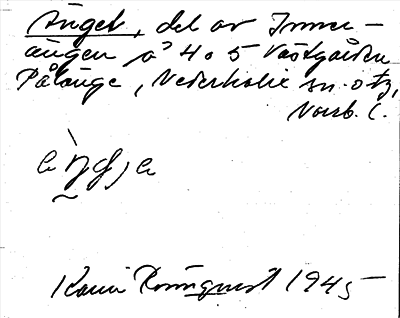 Änget, del av Inner-
ängen på 4 o 5 Västgården
Pålänge, Nederkalix sn. o tg,
Norrb. l.
Karin Rönnqvist 1945